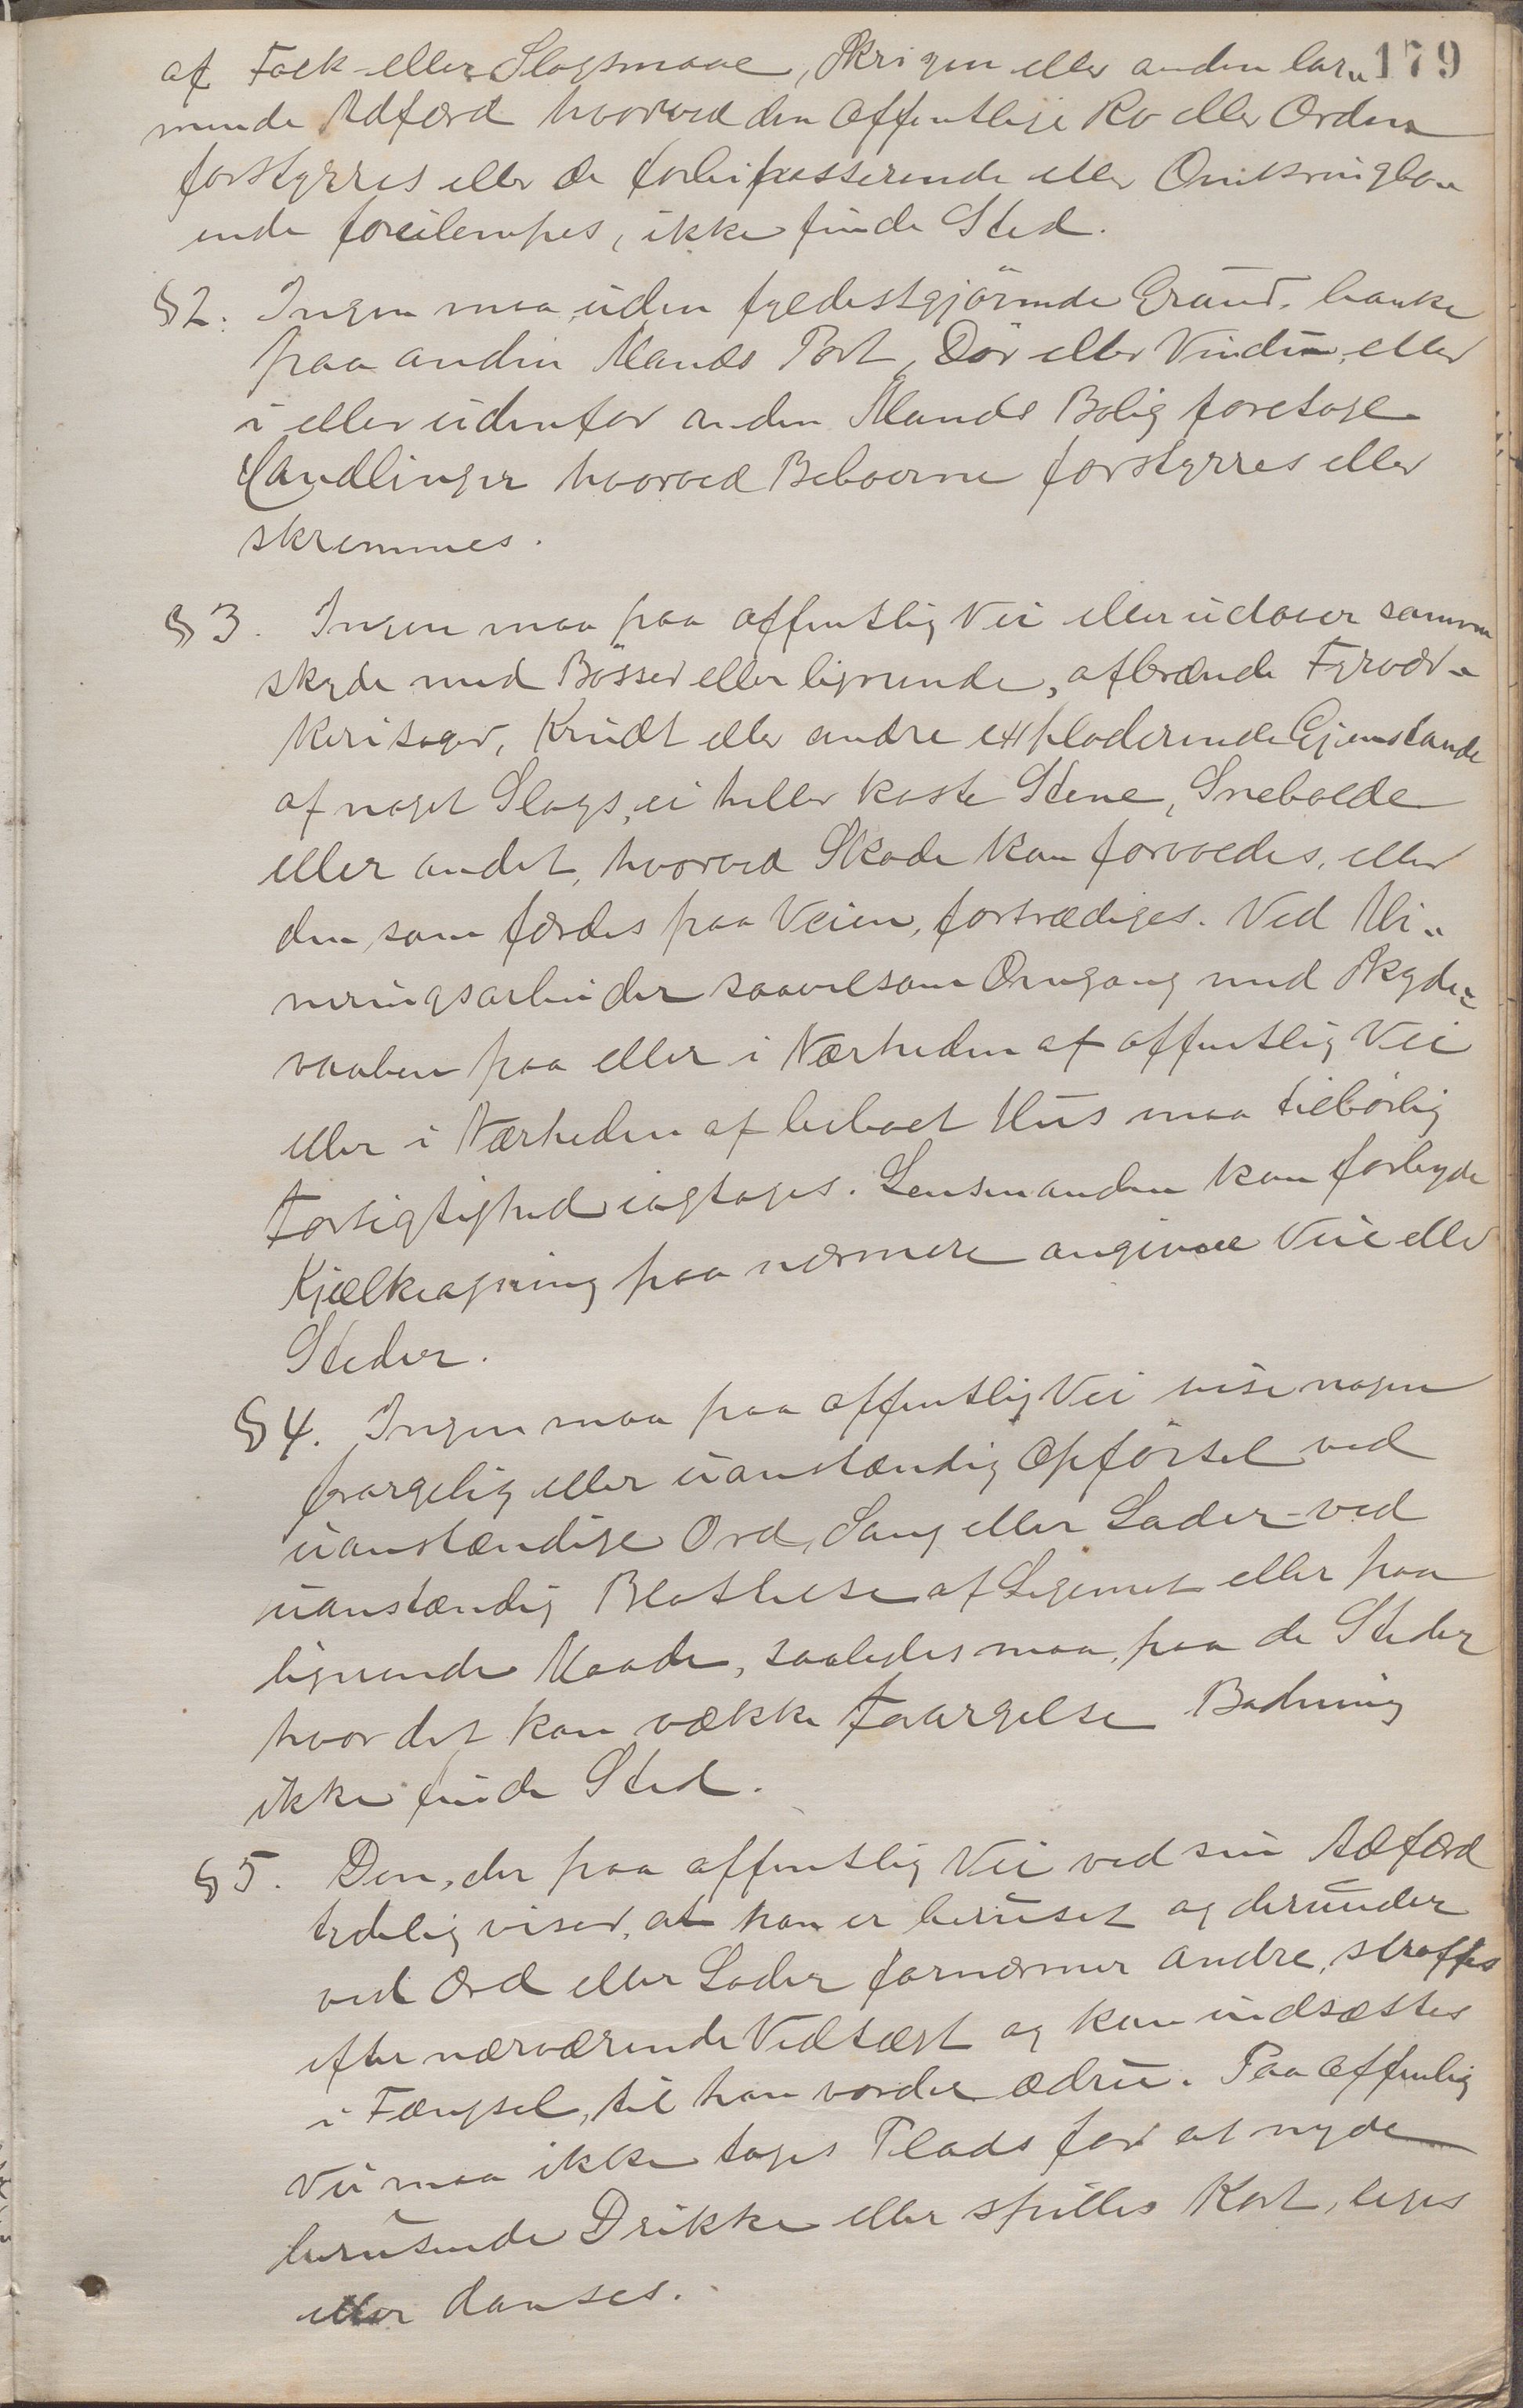 179
af Folk eller Slagsmaal, Skrigen eller anden lar„
mende Adfærd hvorved den offentlige Ro eller Orden
forstyrres eller de forbipasserende eller Omkringbo„
ende foreilempes, ikke finde Sted.
§2. Ingen maa uden fyldestgjörende Grund banke
paa anden Mands Port, Dör eller Vindu, eller
i eller udenfor anden Mands Bolig foretage
Handlinger hvorved Beboerne forstyrres eller
skremmes.
§3. Ingen maa paa offentlig Vei eller udover samme
skyde med Bösser eller lignende, afbrænde Fyrvær„
kerisager, Krudt eller andre exploderende Gjenstande
af noget Slags, ei heller kaste Stene, Snebolde
eller andet, hvorved Skade kan forvoldes, eller
den som færdes paa Veien, fortrædiges. Ved Mi„
neringsarbeider saavelsom Omgang med Skyde„
vaaben paa eller i Nærheden af offentlig Vei
eller i Nærheden af beboet Hus maa tilbörlig
Forsigtighed iagtages. Lensmanden kan forbyde
Kjælkeagning paa nærmere angivne Veie eller
Steder.
§4. Ingen maa paa offentlig Vei vise nogen
forargelig eller uanstændig Opförsel ved
uanstændige Ord, Sang eller Lader ved
uanstændig Blottelse af Legemet eller paa
lignende Maade, saaledes maa, paa de Steder
hvor det kan vække Forargelse Badning
ikke finde Sted.
§5. Den, der paa offentlig Vei ved sin Adfærd
tydelig viser, at han er beruset og derunder
ved Ord eller Lader fornærmer andre, straffes
efter nærværende Vedtægt og kan indsættes
i Fængsel, til han vorder ædru. Paa offenlig
Vei maa ikke tages Plads for at nyde
berusende Drikke eller spilles Kort, leges
eller danses.